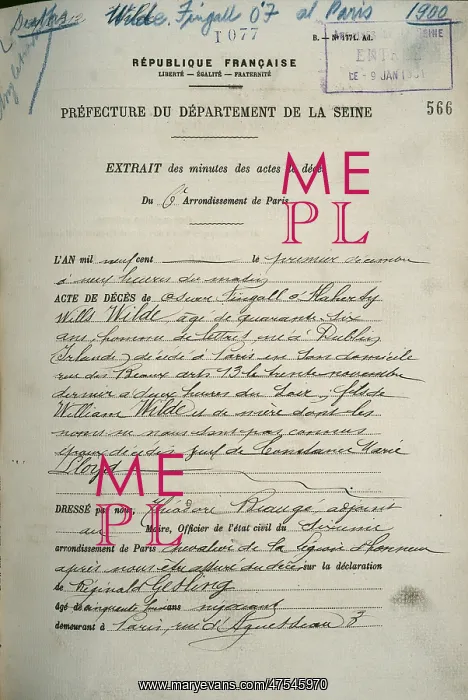 Wilde, Fingall O'F al Paris 1900
1077
B. — N° 1774. Ad.
SEINE
ENT
CE - 9 JAN 1901
RÉPUBLIQUE FRANÇAISE
LIBERTÉ — ÉGALITÉ — FRATERNITÉ
566
PRÉFECTURE DU DÉPARTEMENT DE LA SEINE
EXTRAIT des minutes des actes de décès
Du 6e Arrondissement de Paris
ME
PL
L'AN mil neuf cent le premier décembre
à neuf heures du matin
ACTE DE DÉCÈS de Oscar Fingall o'Flaherty
Wills Wilde, âgé de quarante six
ans, homme de lettres né à Dublin
(Irlande) décédé à Paris en son domicile
rue des Beaux arts 13 le trente novembre
dernier à deux heures du soir, fils de
William Wilde et de mère dont les
noms ne nous sont pas connus
veuf de Constance Marie
Lloyd
ME
PL
DRESSÉ par nous, Théodore Beaugé, adjoint
au Maire, Officier de l'état civil du sixième
arrondissement de Paris chevalier de la Légion d'honneur
après nous être assuré du décès, sur la déclaration
de Réginald Gesling
âgé de cinquante ans négociant
demeurant à Paris, rue d'Aguesseau 3
www.maryevans.com/47545970